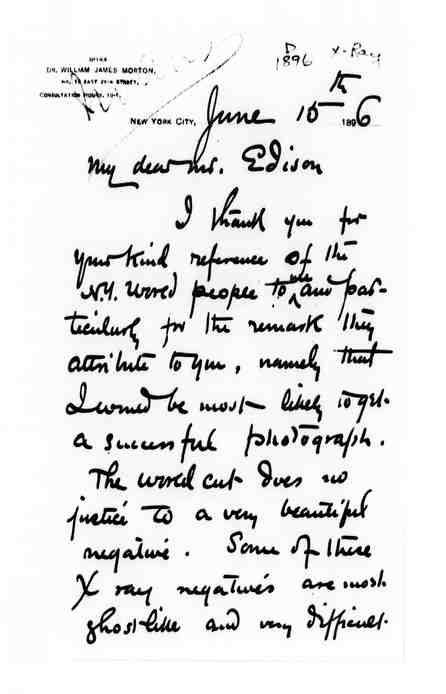 1896 X-Ray
OFFICE
DR. WILLIAM JAMES MORTON,
NO. 19 EAST 28TH STREET,
CONSULTATION HOURS, 10-1.
NEW YORK CITY, June 15th 1896
My dear Mr. Edison
I thank you for
your kind reference of the
N.Y. World people to me and par-
ticularly for the remark they
attribute to you, namely that
I would be most likely to get
a successful photograph.
The World cut does no
justice to a very beautiful
negative. Some of these
X ray negatives are most
ghost-like and very difficult